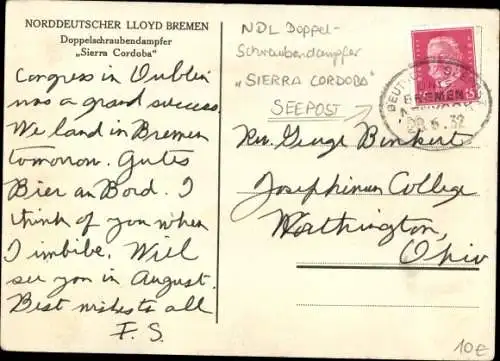 NORDDEUTSCHER LLOYD BREMEN
Doppelschraubendampfer
„Sierra Cordoba"
Congress in Dublin
was a grand success.
We land in Bremen
tomorrow. Gutes
Bier an Bord. I
think of you when
I imbibe. Will
see you in August.
Best wishes to all
F. S.
NDL Doppel-
Schraubendampfer
"SIERRA CORDOBA"
SEEPOST
BREMEN
28.6.32
15
Rev. George Binkert
Josephinum College
Worthington,
Ohio
10€